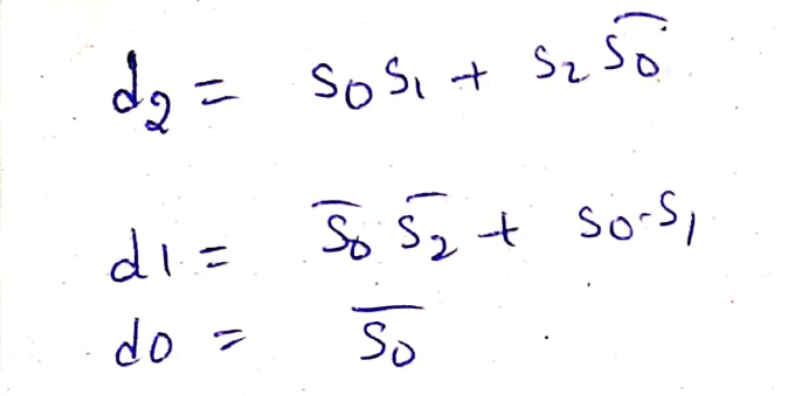 d₂ = s₀s₁ + s₂s̅₀
d1 = s̅₀ s̅₂ + s₀·s₁
d0 = s̅₀